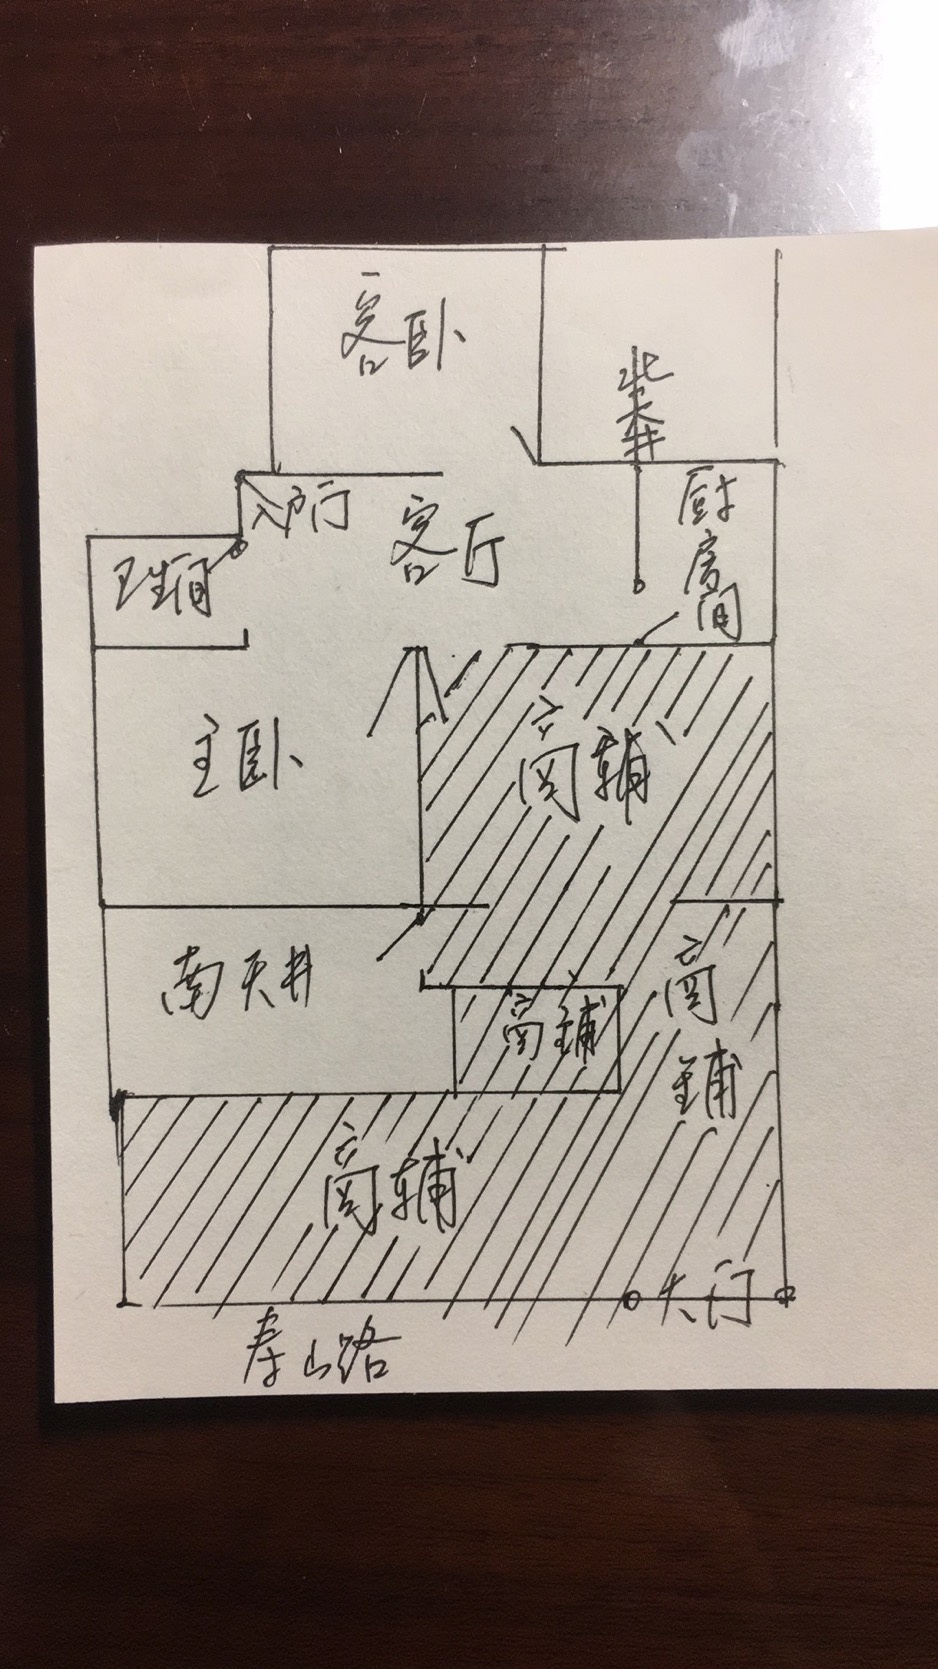 客卧
北天井
入户门
客厅
厨房间
卫生间
主卧
商辅
南天井
商铺
商铺
商辅
大门
寿山路